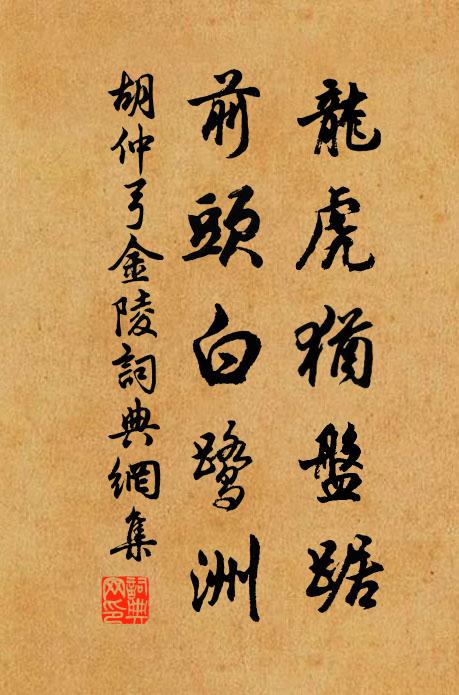 龍虎猶盤踞
前頭白鷺洲
胡仲弓金陵詞典網集
詞典網印